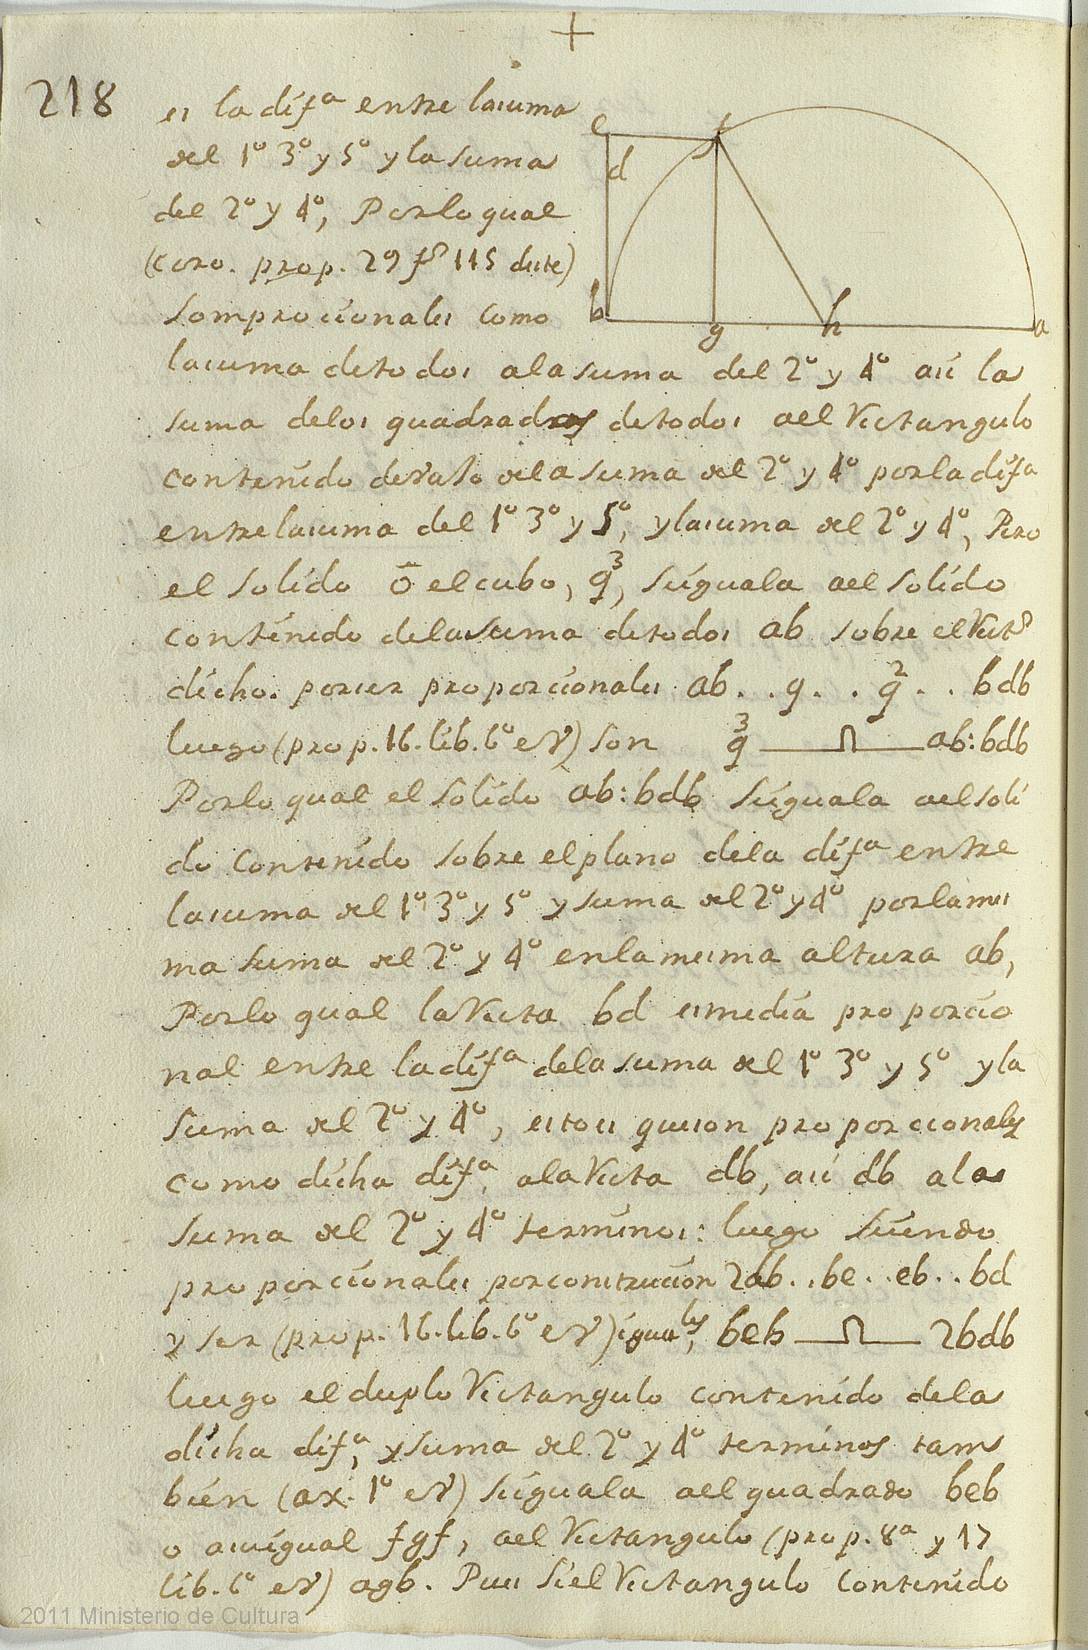 218
es la dif.ª entre la suma
del 1º 3º y 5º y la suma
del 2º y 4º, Por lo qual
(coro. prop. 29 fº 115 deste)
Son proporcionales como
la suma de todos a la suma del 2º y 4º asi la
suma de los quadrados de todos a el Rectangulo
contenido debaxo de la suma del 2º y 4º por la difª
entre la suma del 1º 3º y 5º, y la suma del 2º y 4º, Pero
el solido ō el cubo, q³, se iguala a el solido
contenido de la suma de todos ab sobre el Rectº
dicho. por ser proporcionales ab . . q . . q² . . bdb
luego (prop. 16. lib. 6º eV) son q³ ——— ab:bdb
Por lo qual el solido ab:bdb se iguala a el soli
do contenido sobre el plano de la difª entre
la suma del 1º 3º y 5º y suma del 2º y 4º por la mis
ma suma del 2º y 4º en la mesma altura ab,
Por lo qual la Recta bd es media proporcio
nal entre la difª de la suma del 1º 3º y 5º y la
suma del 2º y 4º, esto es que son proporcionales
como dicha difª, a la Recta db, asi db a la
suma del 2º y 4º terminos: luego siendo
proporcionales por construccion 2db . . be . . eb . . bd
y ser (prop. 16. lib. 6º eV) iguales, beb ——— 2bdb
luego el duplo Rectangulo contenido de la
dicha difª, y suma del 2º y 4º terminos tam
bien (ax. 1º eV) se iguala a el quadrado beb
o a su igual fgf, a el Rectangulo (prop. 8ª y 17
lib. 6º eV) agb. Pues si el Rectangulo contenido
e
f
d
b
g
h
a
2011 Ministerio de Cultura